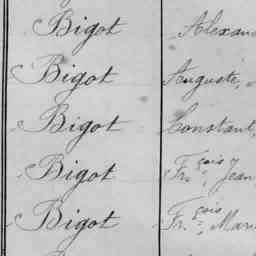 Bigot Alexan
Bigot Auguste,
Bigot Constant,
Bigot Fr.çois, Jean
Bigot Fr.çois, Mari